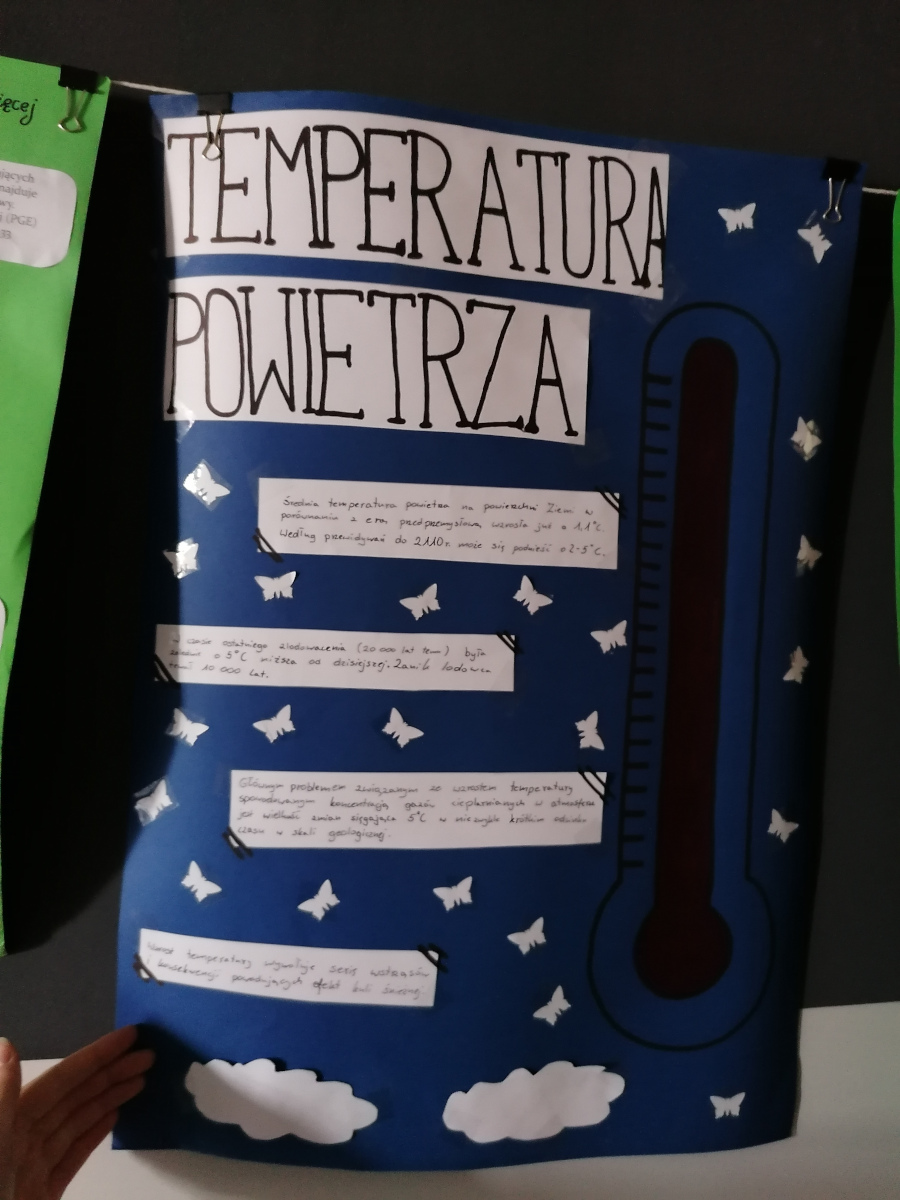 ięcej
jących
najduje
wy.
j (PGE)
TEMPERATURA
POWIETRZA
Średnia temperatura powietrza na powierzchni Ziemi w
porównaniu z erą przedprzemysłową wzrosła już o 1,1°C.
Według przewidywań do 2110r. może się podnieść o 2-5°C.
W czasie ostatniego zlodowacenia (20 000 lat temu) była
o 5°C niższa od dzisiejszej. Zanik lodowca
10 000 lat.
Głównym problemem związanym ze wzrostem temperatury
spowodowanym koncentracją gazów cieplarnianych w atmosferze
jest wielkość zmian sięgająca 5°C w niezwykle krótkim odcinku
czasu w skali geologicznej.
Wzrost temperatury wywołuje serię wstrząsów
i konsekwencji powodujących efekt kuli śnieżnej.